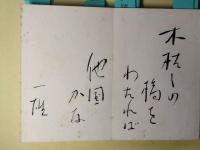 木枯しの
橋を
わたれば
他国
かな
一雄